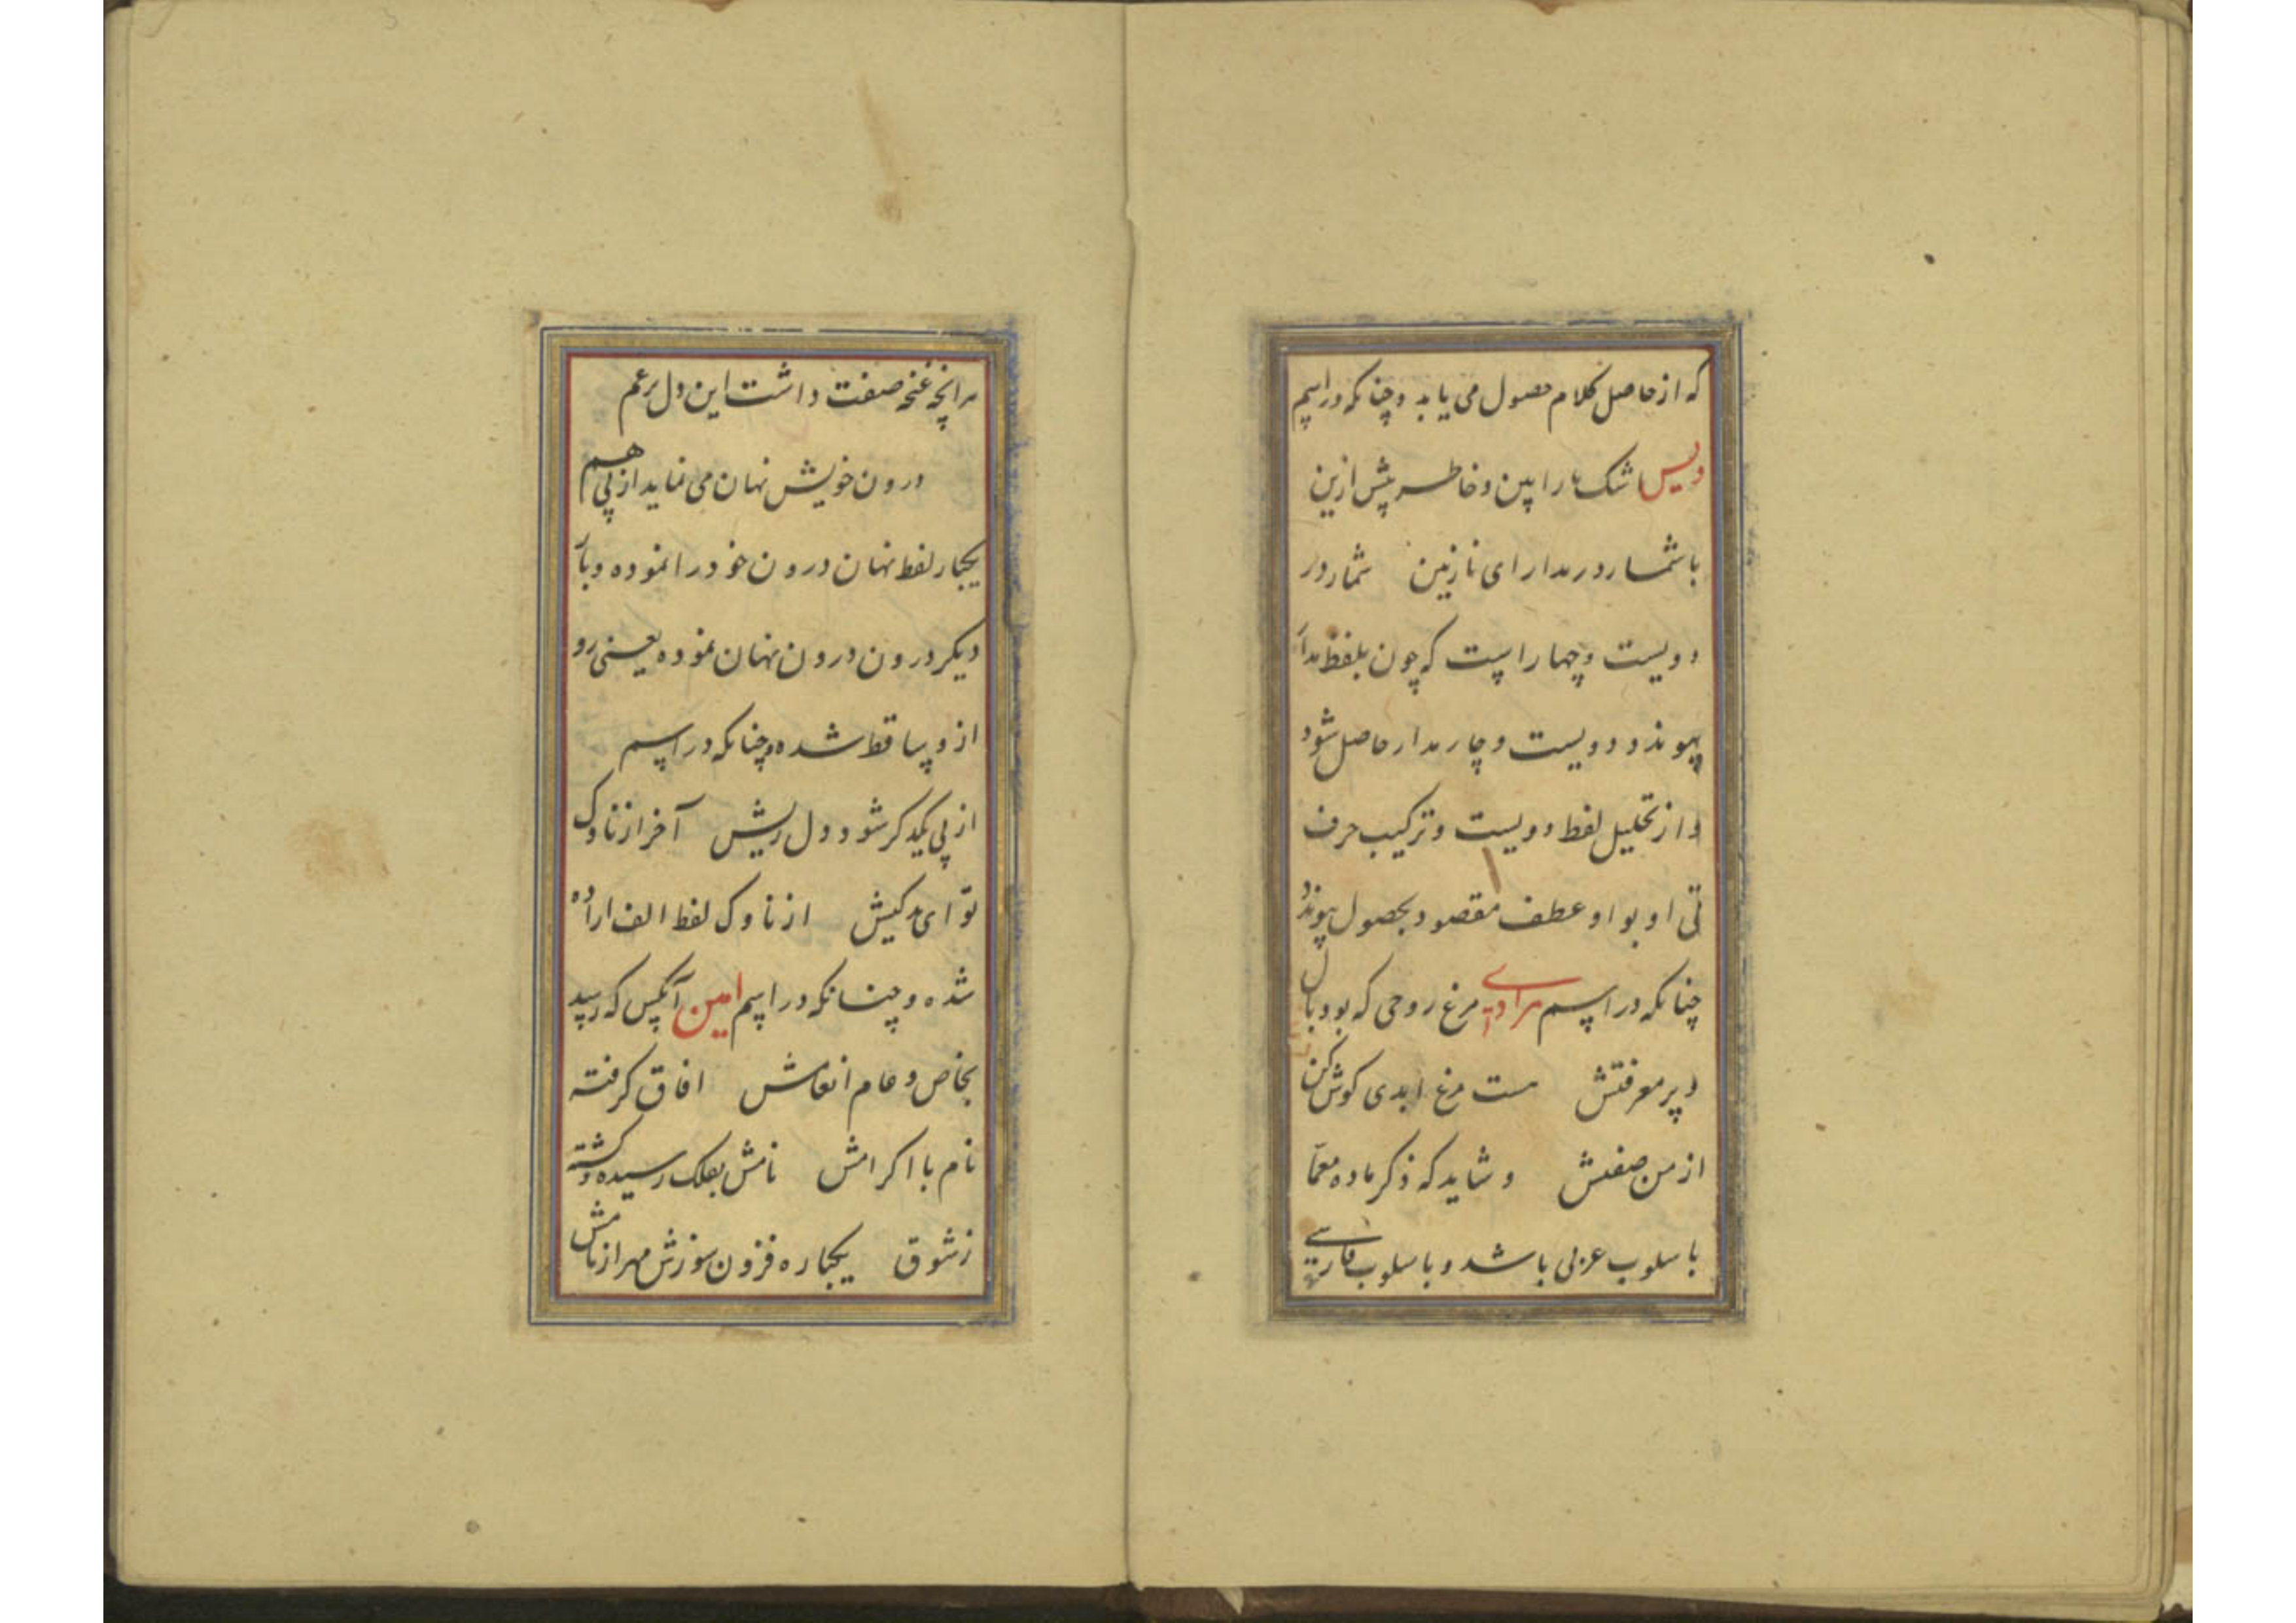 که از حاصل کلام حصول می یابد و چنانکه در اسم
ویس اشک ما را ببین و خاطر پیش ازین
با شما ر و در مدار ای نازنین شمار ور
دویست و چهار است که چون بلفظ مدا
پیوندد و دویست و چار مدار حاصل شود
و از تحلیل لفظ دویست و ترکیب حرف
تی او بواو عطف مقصود بحصول پیوندد
چنانکه در اسم مرغ روحی که بود بال
و پر معرفتش هست مرغ ابدی کوش کن
از من صفتش و شاید که ذکر ماده معما
باسلوب عربی باشد و باسلوب فارسی
هر آنچه غنچه صفت داشت این دل پر غم
درون خویش نهان می نماید از پی هم
یکبار لفظ نهان درون خود را نموده و بار
دیکر درون درون نهان نموده یعنی رو
ازو ساقط شده و چنانکه در اسم
از پی یکدکر شود دل ریش آخر از ناوک
تو ای بد کیش از ناوک لفظ الف اراده
شده و چنانکه در اسم امین آنکس که رسید
بخاص و عام انعامش افاق کرفته
نام با اکرامش نامش بفلک رسیده و کشته
ز شوق یکباره فزون سوزش مهر از نامش